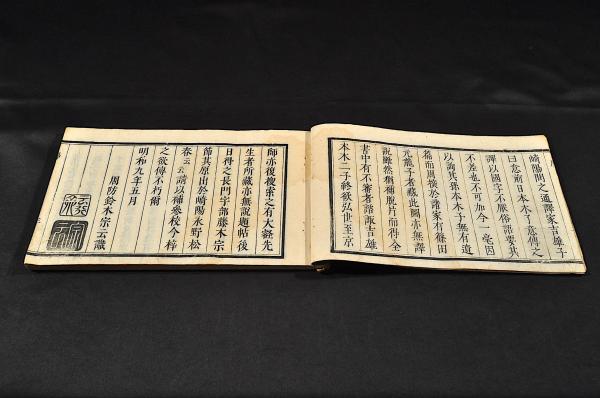 崎陽關之通譯家吉雄子
曰忿前日本木了意傳之
譯以國字不厭俗語要其
不差也不可加今一毫因
以詢其孫本木子無有遺
稿而周摸於諸家有篠田
元龍子者藏此圖亦無譯
說雖然猶補脫片而得全
書中有不審者諮諏吉雄
本木二子終欲弘世至京
師亦復搜索之有大谿先
生者所藏亦無說題帖後
日得之長門宇部藤木宗
節其原出於崎陽永野松
春云云請以補參校今梓
之欲傳不朽爾
明和九年五月
周防鈴木宗云識